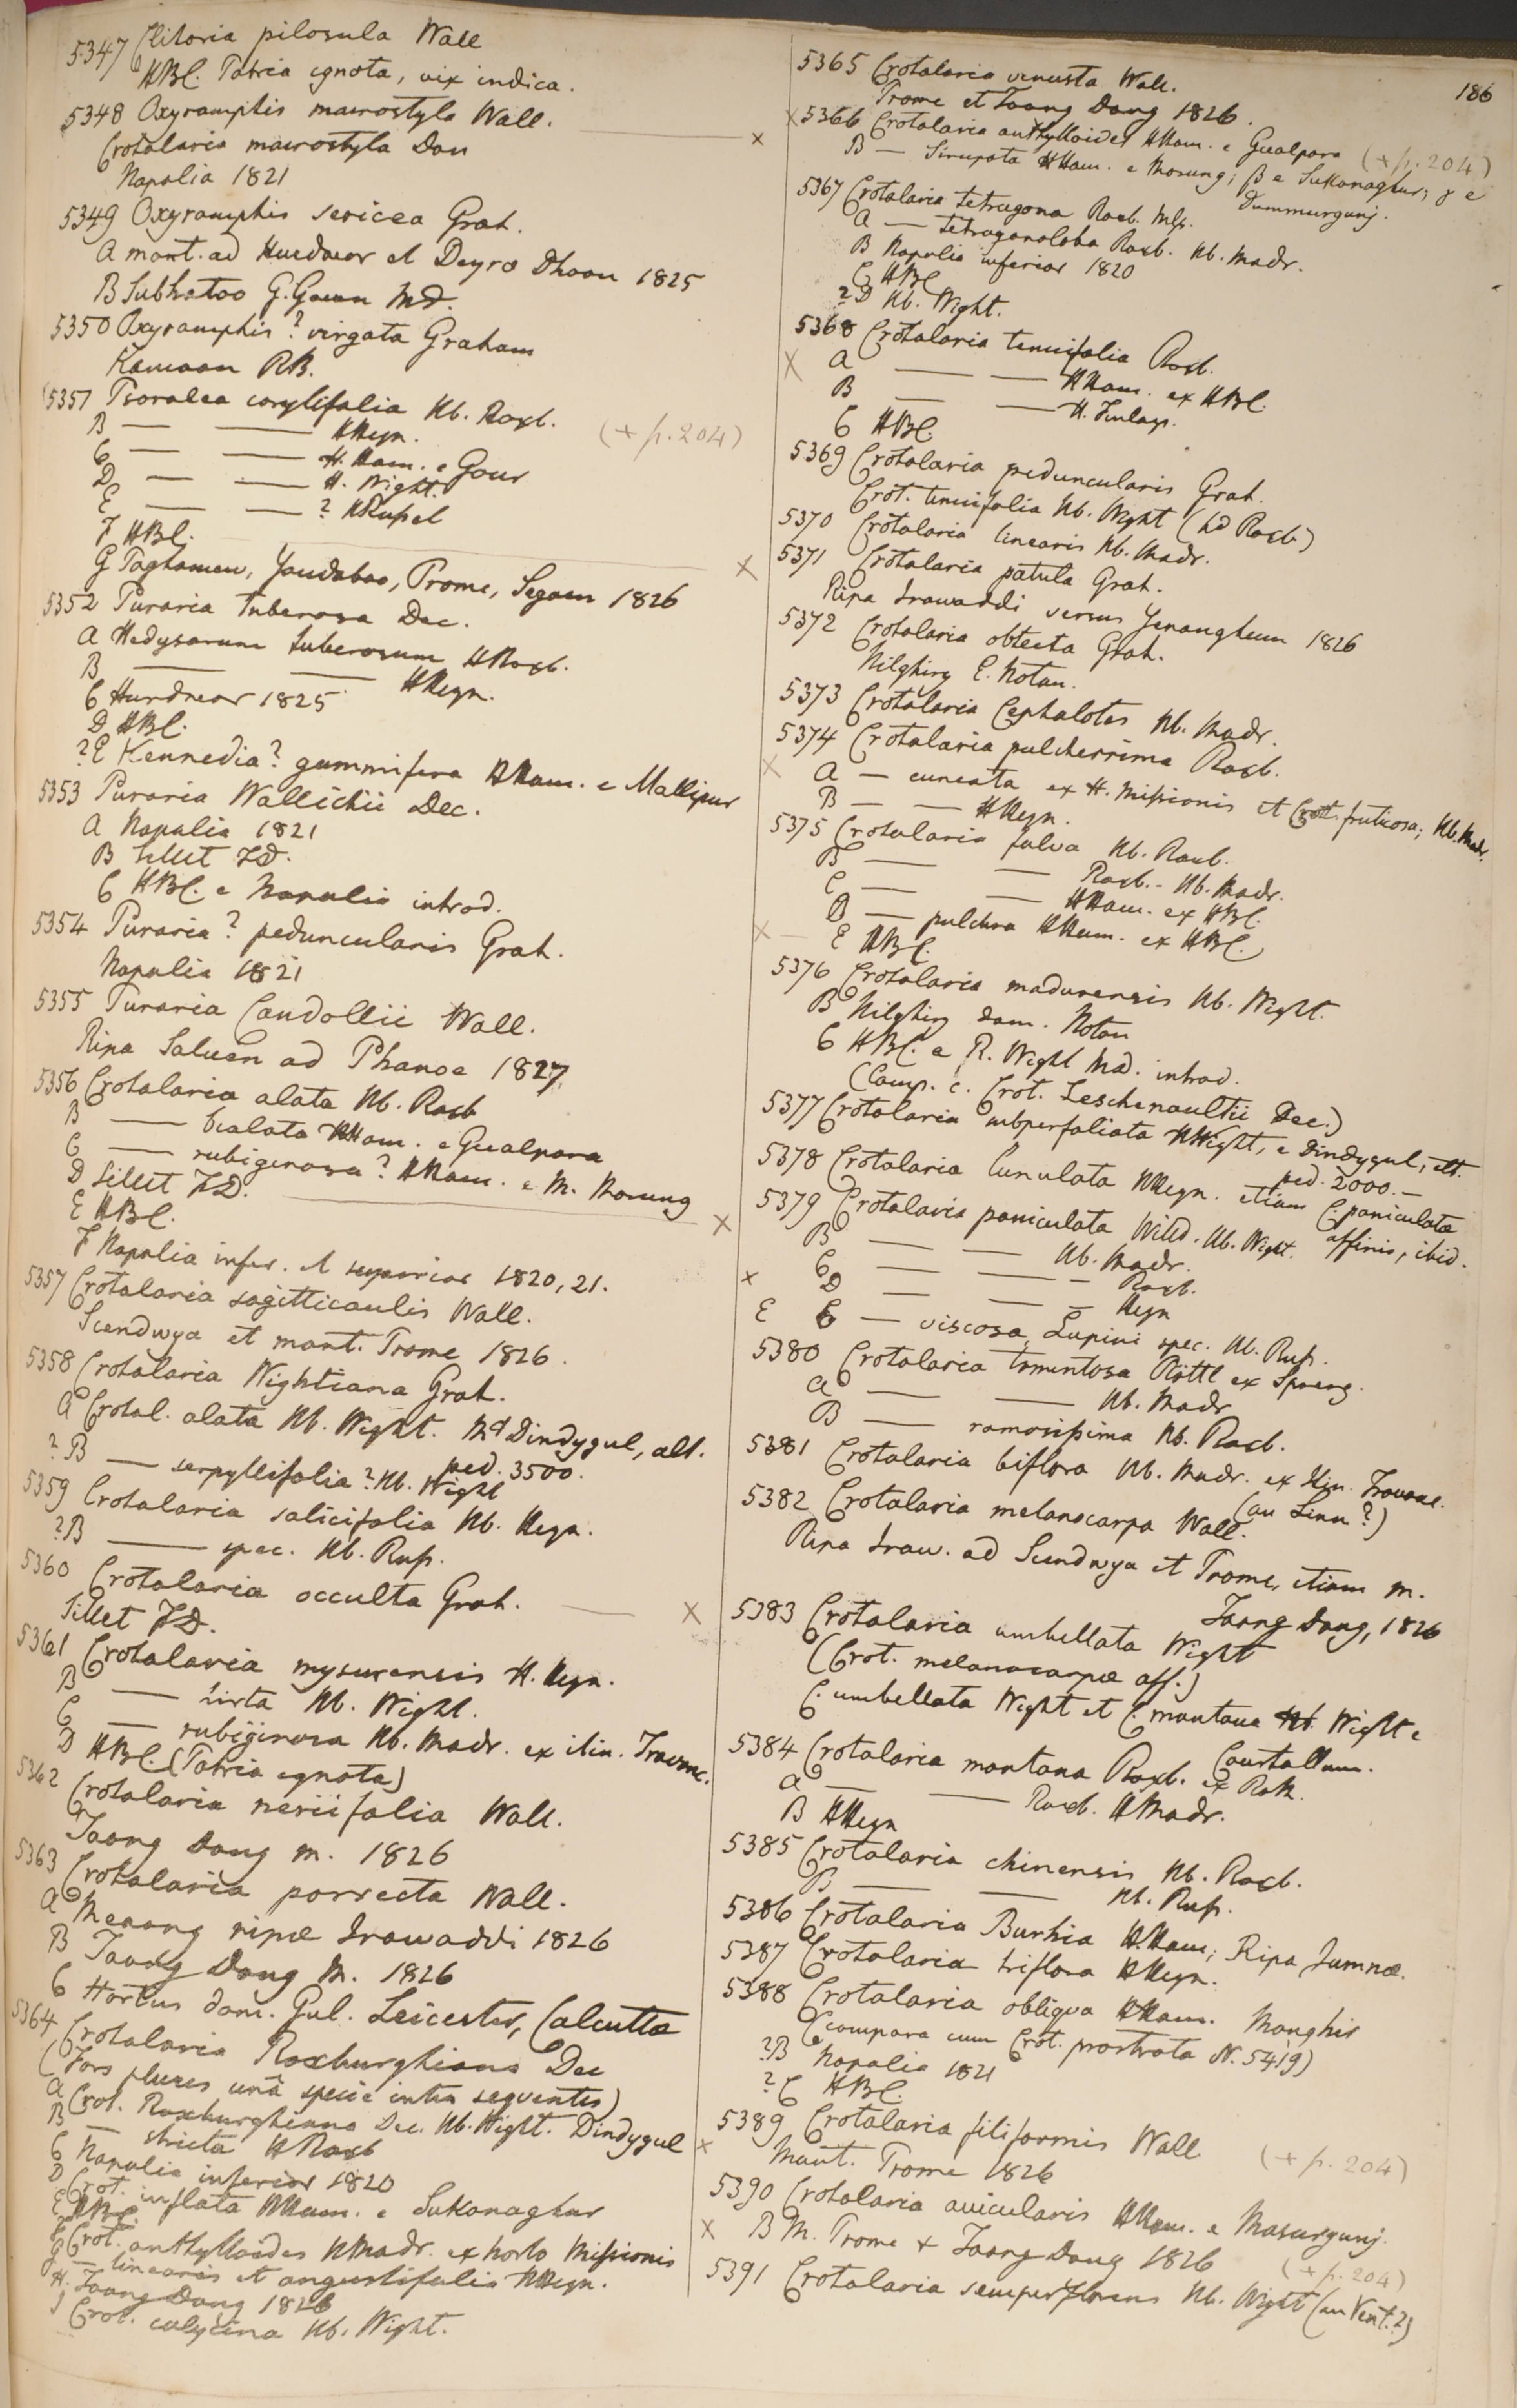 5347 Clitoria pilosula Wall
HBC. Patria ignota, vix indica.
5348 Oxyramphis macrostyla Wall.
Crotalaria macrostyla Don
Napalia 1821
5349 Oxyramphis sericea Grah.
A mont. ad Hurdwar et Deyra Dhoon 1825
B Subhatoo G. Govan MD.
5350 Oxyramphis? virgata Graham
Kamaon RB.
5351 Psoralea corylifolia Hb. Roxb.
B — — HHeyn. (+ p. 204)
C — — H. Ham. e Gour
D — — H. Wight.
E — — ? HRussel
F HBC.
G Paghamew, Yandaboo, Prome, Segaen 1826
5352 Puraria tuberosa Dec.
A Hedysarum tuberosum HRoxb.
B — — HHeyn.
C Hurdwar 1825
D HBC.
?E Kennedia? gummifera HHam. e Mallipur
5353 Puraria Wallichii Dec.
A Napalia 1821
B Sillet FD.
C HBC. e Napalia introd.
5354 Puraria? peduncularis Grah.
Napalia 1821
5355 Puraria Candollii Wall.
Ripa Saluen ad Phanoe 1827
5356 Crotalaria alata Hb. Roxb
B — bialata HHam. e Gualpara
C — rubiginosa? HHam. e M. Morung
D Sillet FD.
E HBC.
F Napalia infer. et superior 1820, 21.
5357 Crotalaria sagitticaulis Wall.
Seendwya et mont. Prome 1826.
5358 Crotalaria Wightiana Grah.
A Crotal. alata Hb. Wight. Md Dindygul, alt.
ped. 3500.
?B — serpyllifolia? Hb. Wight
5359 Crotalaria salicifolia Hb. Heyn.
?B — spec. Hb. Russ.
5360 Crotalaria occulta Grah.
Sillet FD.
5361 Crotalaria mysurensis H. Heyn.
B — hirta Hb. Wight.
C — rubiginosa Hb. Madr. ex itin. Travanc.
D HBC. (Patria ignota)
5362 Crotalaria neriifolia Wall.
Taong Dong m. 1826
5363 Crotalaria porrecta Wall.
A Meaong ripae Irawaddi 1826
B Taong Dong M. 1826
C Hortus dom. Gul. Leicester, Calcutta
5364 Crotalaria Roxburghiana Dec
(Fors plures unâ specie intra sequentes)
A Crot. Roxburghiana Dec. Hb. Wight. Dindygul
B — stricta HRoxb
C Napalia inferior 1820
D Crot. inflata HHam. e Sukanaghur
E HBC.
F Crot. anthylloides HMadr. ex horto Missionis
G — linearis et angustifolia HHeyn.
H. Taong Dong 1826
I Crot. calycina Hb. Wight.
186
5365 Crotalaria venusta Wall.
Prome et Taong Dong 1826.
5366 Crotalaria anthylloides HHam. e Gualpara (+ p. 204)
B — Sirupata HHam. e Morung; β e Sukanaghur; γ e
Dummurgunj.
5367 Crotalaria tetragona Roxb. Mss.
A — tetragonoloba Roxb. Hb. Madr.
B Napalia inferior 1820
C HBC
?D Hb. Wight.
5368 Crotalaria tenuifolia Roxb.
A — — HHam. ex HBC.
B — — H. Finlays.
C HBC.
5369 Crotalaria peduncularis Grah.
Crot. tenuifolia Hb. Wight (hd Roxb)
5370 Crotalaria linearis Hb. Madr.
5371 Crotalaria patula Grah.
Ripa Irawaddi versus Yenangheum 1826
5372 Crotalaria obtecta Grah.
Nilghiry E. Noton.
5373 Crotalaria Cephalotes Hb. Madr.
5374 Crotalaria pulcherrima Roxb.
A — cuneata ex H. Missionis et Crot. fruticosa; Hb. Madr.
B — — HHeyn.
5375 Crotalaria fulva Hb. Roxb.
B — — Roxb. - Hb. Madr.
C — — HHam. ex HBC.
D — pulchra HHam. ex HBC.
E HBC.
5376 Crotalaria madurensis Hb. Wight.
B Nilghiry dom. Noton
C HBC. e R. Wight Md. introd.
(Comp. c. Crot. Leschenaultii Dec.)
5377 Crotalaria subperfoliata HWight, e Dindygul, alt.
ped. 2000. —
5378 Crotalaria lunulata HHeyn. etiam C. paniculata
affinis, ibid.
5379 Crotalaria paniculata Willd. Hb. Wight.
B — — Hb. Madr.
C — — Roxb.
D — — Heyn
E — viscosa, Lupini spec. Hb. Russ.
5380 Crotalaria tomentosa Rottl ex Spreng.
A — — Hb. Madr
B — ramosissima Hb. Roxb.
5381 Crotalaria biflora Hb. Madr. ex itin. Travanc.
(an Linn?)
5382 Crotalaria melanocarpa Wall.
Ripa Iraw. ad Seendwya et Prome, etiam m.
Taong Dong, 1826
5383 Crotalaria umbellata Wight
(Crot. melanocarpae aff.)
C. umbellata Wight et C. montana Wight e
Courtallum.
5384 Crotalaria montana Roxb. ex Roth.
A — — Roxb. HMadr.
B HHeyn
5385 Crotalaria chinensis Hb. Roxb.
B — — Hb. Russ.
5386 Crotalaria Burhia H.Ham; Ripa Jumnae.
5387 Crotalaria triflora HHeyn.
5388 Crotalaria obliqua HHam. Monghir
(compara cum Crot. prostrata N. 5419)
?B Napalia 1821
?C HBC.
5389 Crotalaria filiformis Wall (+ p. 204)
Mont. Prome 1826
5390 Crotalaria avicularis HHam. e Nasurgunj.
B M. Prome & Taong Dong 1826 (+ p. 204)
5391 Crotalaria semperflorens Hb. Wight (an Vent.?)